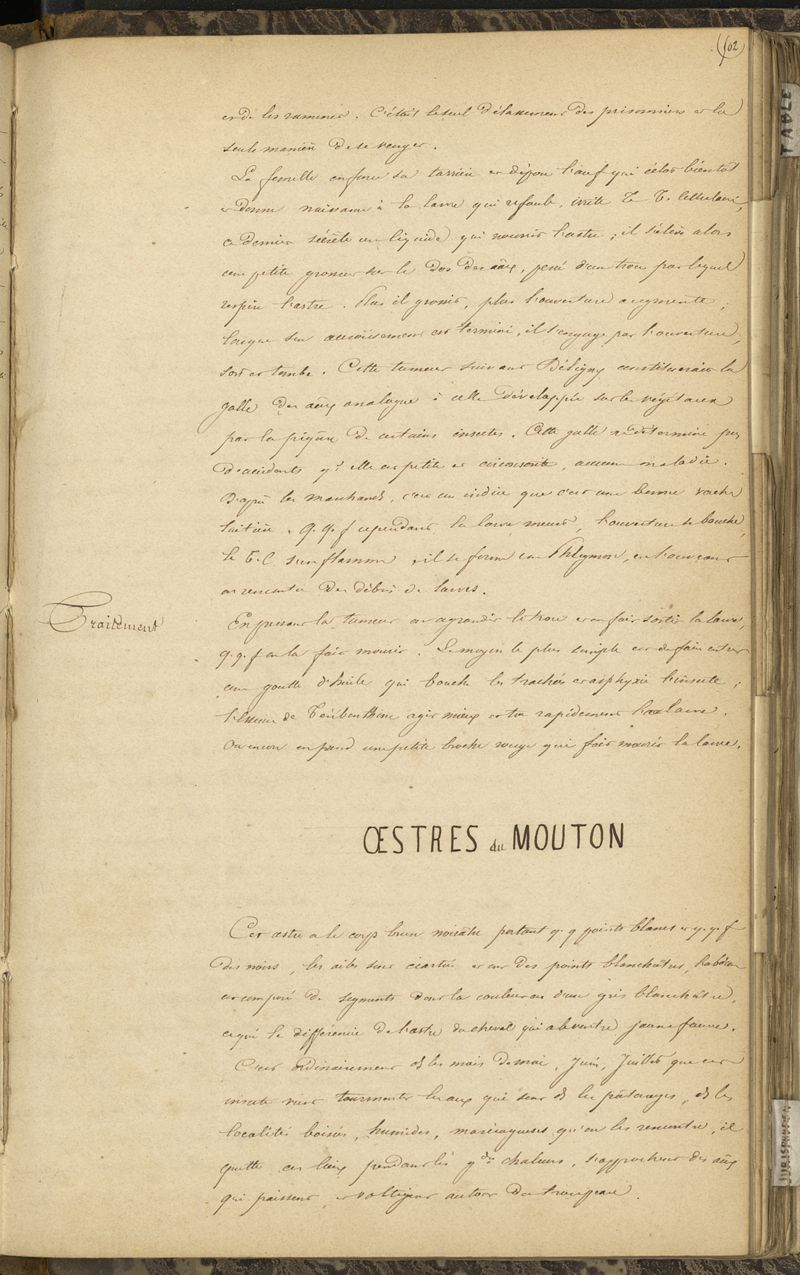 (102)
TABLE
et de les ramener. C'était le seul délassement des prisonniers et la
seule manière de se venger.
La femelle enfonce sa tarrière et dépose l'œuf qui éclot bientôt
et donne naissance à la larve qui refoule, irrite le T. Cellulaire,
ce dernier sécrète un liquide qui nourrit l'œstre ; il s'élève alors
une petite grosseur sur le dos des aux, percé d'un trou par lequel
respire l'œstre. Plus il grossit, plus l'ouverture augmente,
lorsque son accroissement est terminé, il s'engage par l'ouverture,
sort et tombe. Cette tumeur suivant constituerait la
galle des aux analogue à celle développée sur les végétaux
par la piqûre de certains insectes. Cette galle ne détermine pas
d'accidents qd elle est petite et circonscrite, aucune maladie.
D'après les marchands, c'est un indice que c'est une bonne vache
laitière. q.q.f cependant la larve meurt, l'ouverture se bouche,
le T.C s'enflamme, il se forme un Phlegmon, en l'ouvrant
on rencontre des débris de larves.
Traitement
En pressant la tumeur on agrandit le trou et on fait sortir la larve,
q.q.f on la fait mourir. Le moyen le plus simple est de faire entrer
une goutte d'huile qui bouche les trachées et asphyxie l'insecte ;
l'essence de Térébenthine agit mieux et tue rapidement la larve.
Ou encore on prend une petite broche rouge qui fait mourir la larve.
ŒSTRES du MOUTON
Cet œstre a le corps brun noirâtre portant q.q points blancs et q.q.f
des noirs, les ailes sont écartées et ont des points blanchâtres, l'abdomen
est composé de segments dont la couleur est d'un gris blanchâtre,
ce qui le différencie de l'œstre du cheval qui a le ventre jaune fauve.
C'est ordinairement ds les mois de mai, Juin, Juillet que cet
insecte vient tourmenter les aux qui sont ds les pâturages, ds les
localités boisées, humides, marécageuses qu'on les rencontre, il
quitte ces lieux pendant les gdes chaleurs, s'approchent des aux
qui paissent, et voltigent autour du troupeau.
JURISPRUDENCE